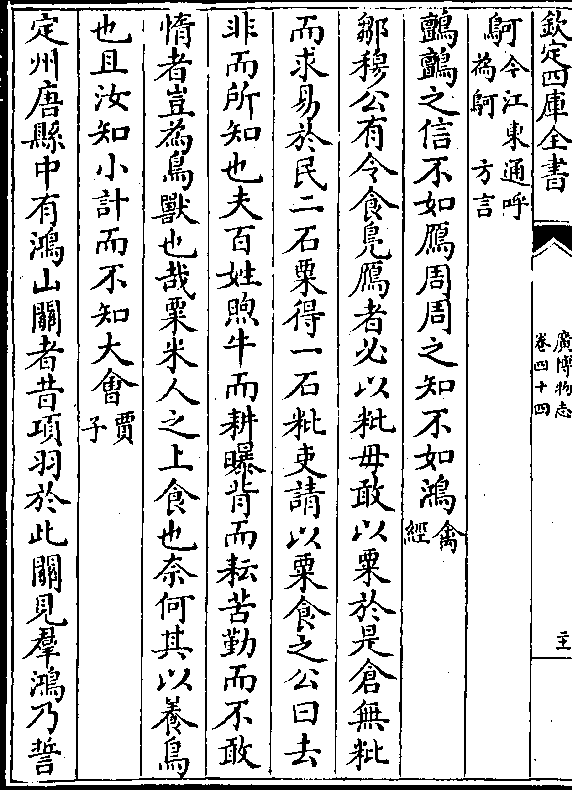 欽定四庫全書
廣博物志
卷四十四
二十
鴚今江東通呼
為鴚 方言
鸛鸛之信不如鴈周周之知不如鴻禽經
鄒穆公有令食鳬鴈者必以粃毋敢以粟於是倉無粃
而求易於民二石粟得一石粃吏請以粟食之公曰去
非而所知也夫百姓煦牛而耕曝背而耘苦勤而不敢
惰者豈為鳥獸也哉粟米人之上食也奈何其以養鳥
也且汝知小計而不知大會賈子
定州唐縣中有鴻山關者昔項羽於此關見羣鴻乃誓